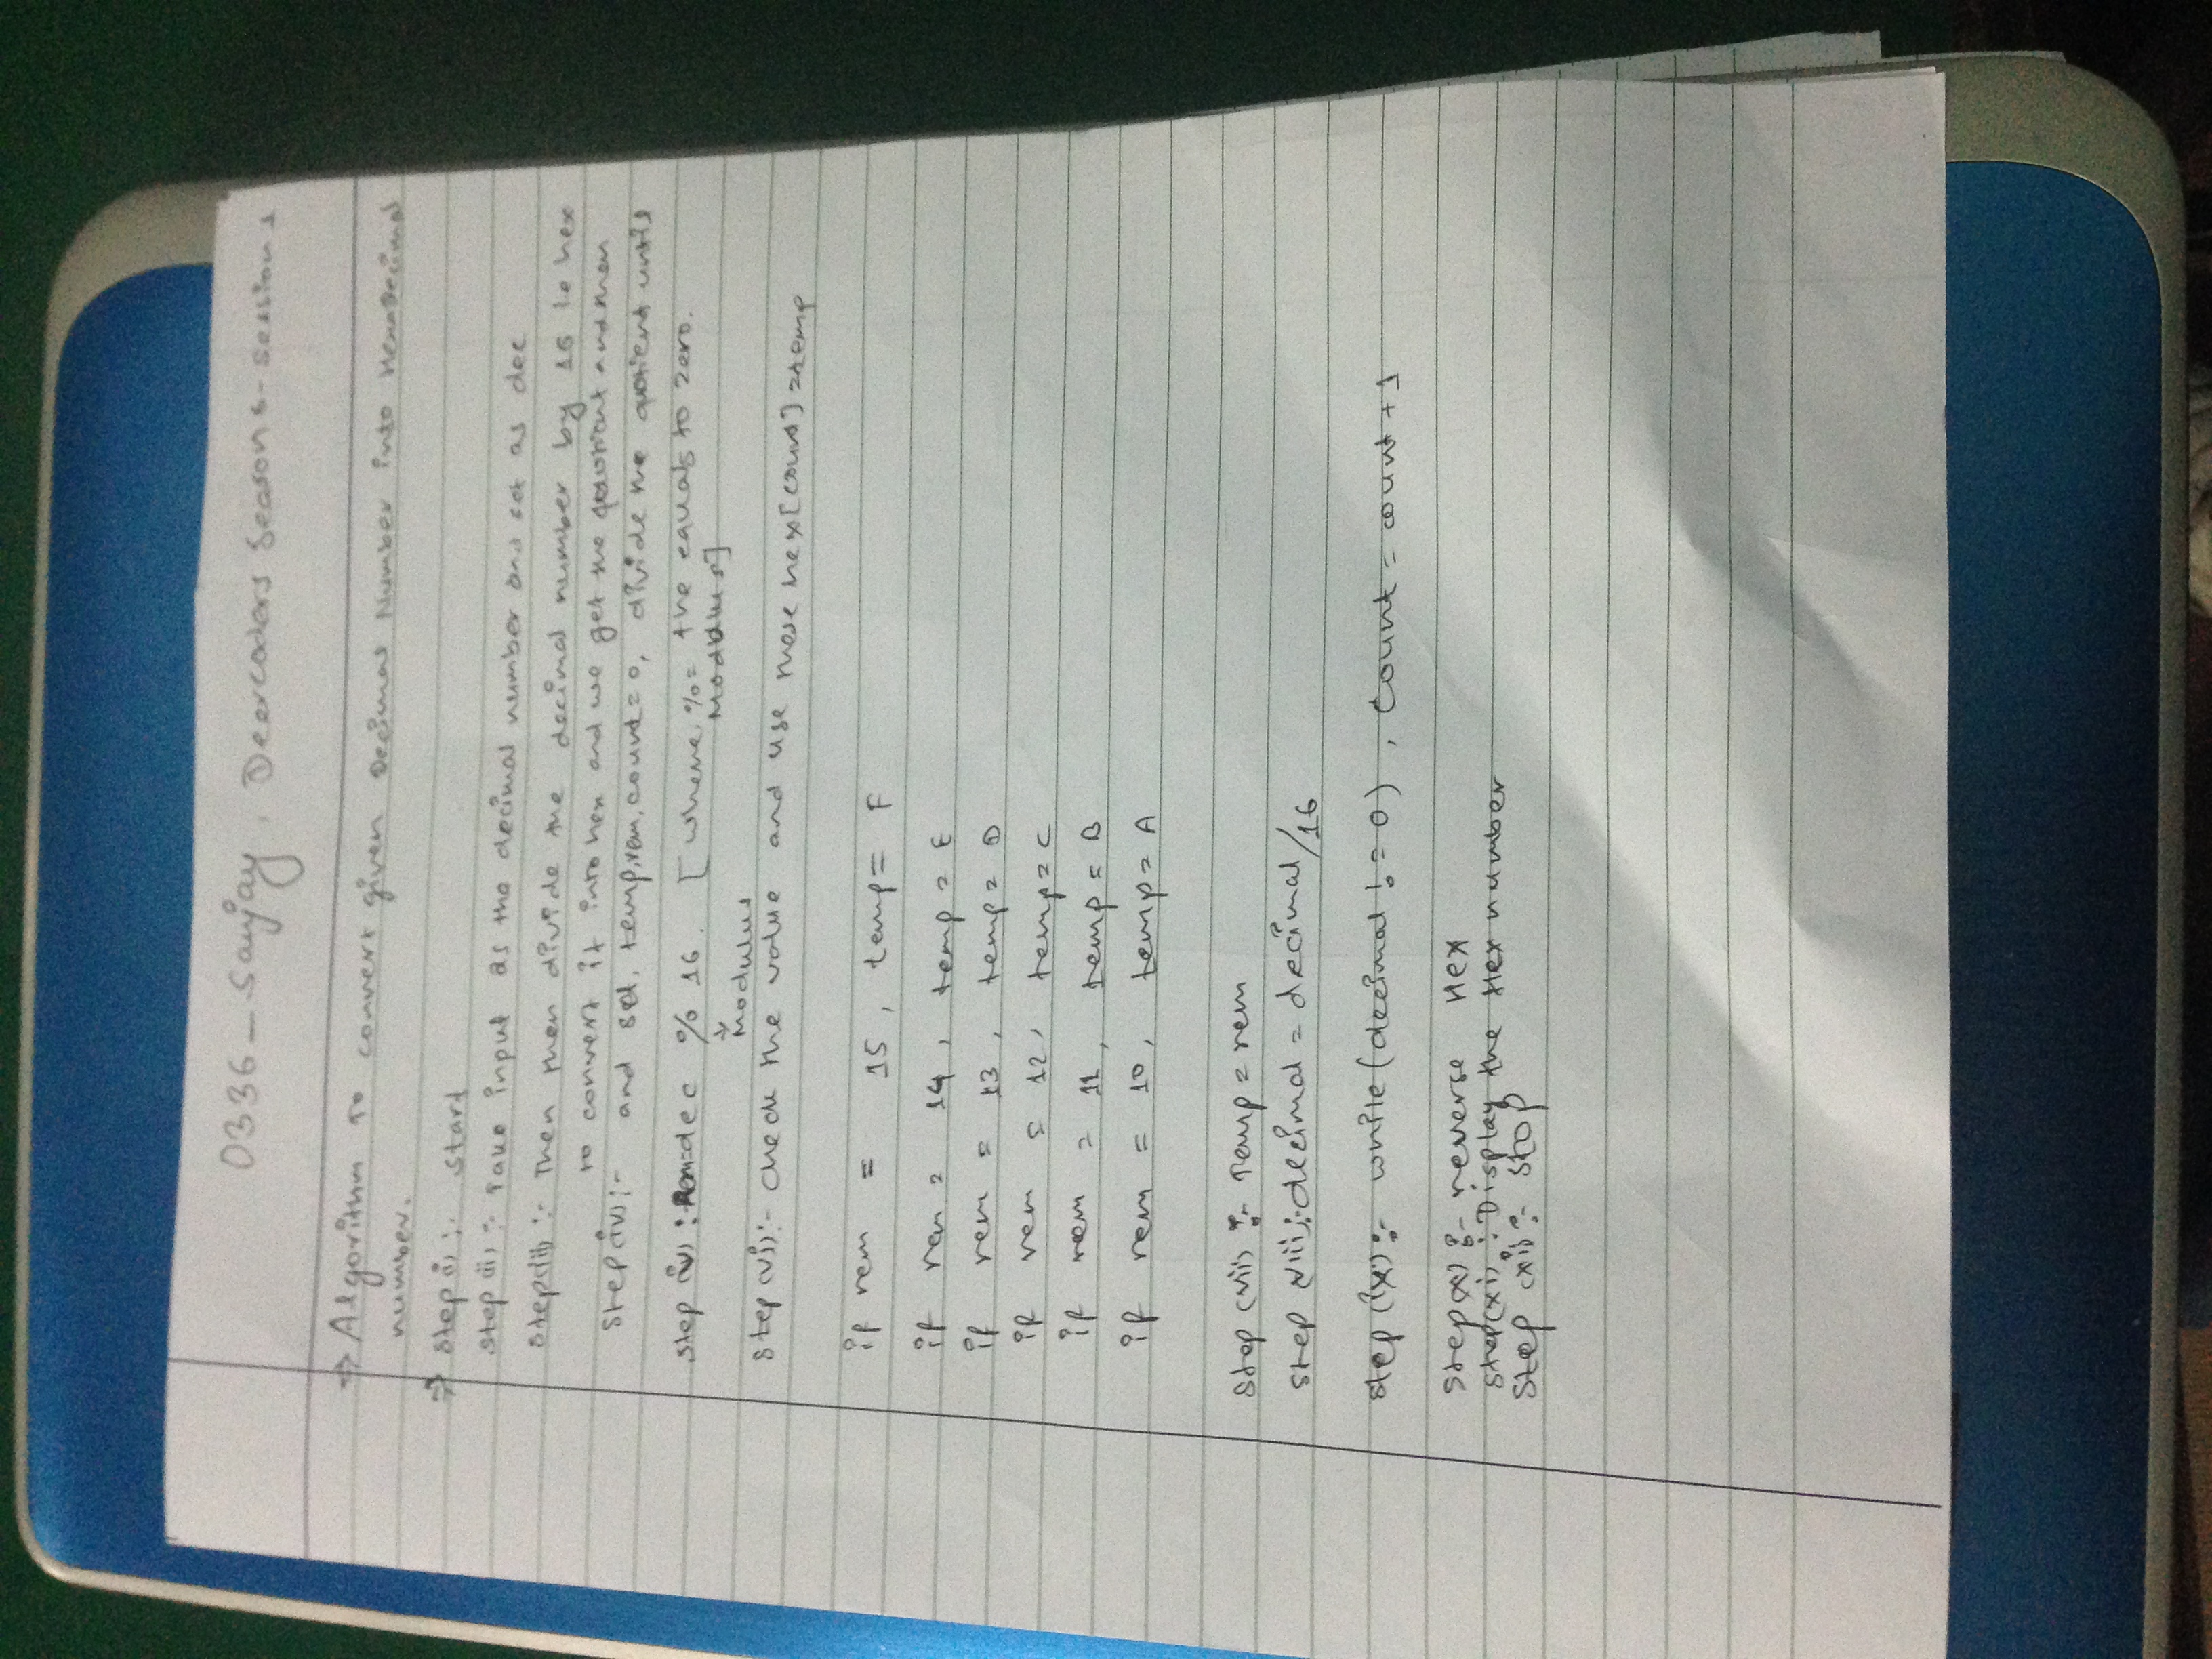 0336 - Sanjay, Deercoders Season 6 - session 1
⇒ Algorithm To convert given Decimal Number into HexaDecimal
number.
⇒ Step (i) :- Start
Step (ii) :- Take input as the decimal number and set as dec
Step (iii) :- Then then divide the decimal number by 16 to hex
to convert it into hex and we get the quotient and then
Step (iv) :- and set, temp, rem, count = 0, divide the quotient until
Step (v) :- Rem = dec % 16. [ where, % = the equals to zero.
↓ Modulus Modulus]
Step (vi) :- check the value and use these hex[count] = temp
if rem = 15, temp = F
if rem = 14, temp = E
if rem = 13, temp = D
if rem = 12, temp = C
if rem = 11, temp = B
if rem = 10, temp = A
Step (vii) :- Temp = rem
Step viii) :- decimal = decimal/16
Step (ix) :- while (decimal != 0), Count = count + 1
Step (x) :- reverse Hex
Step (xi) :- Display the Hex number
Step (xii) :- Stop